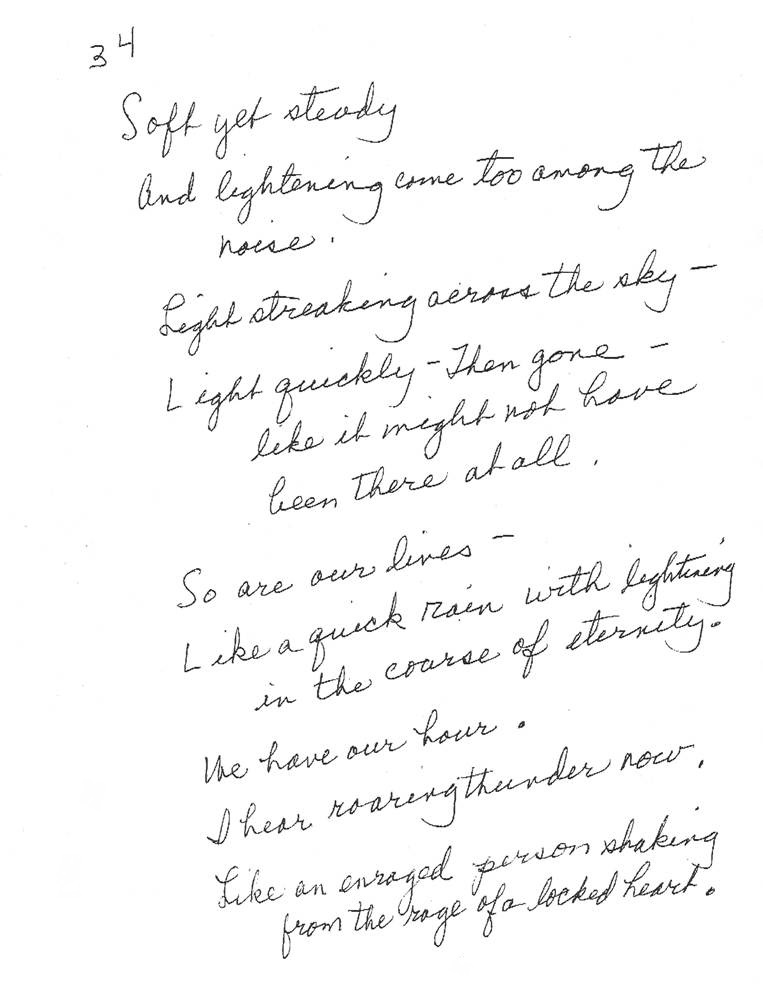 34
Soft yet steady
And lightening come too among the
noise.
Light streaking across the sky –
Light quickly – Then gone –
like it might not have
been there at all.
So are our lives –
Like a quick rain with lightining
in the course of eternity.
We have our hour.
I hear roaring thunder now.
Like an enraged person shaking
from the rage of a locked heart.